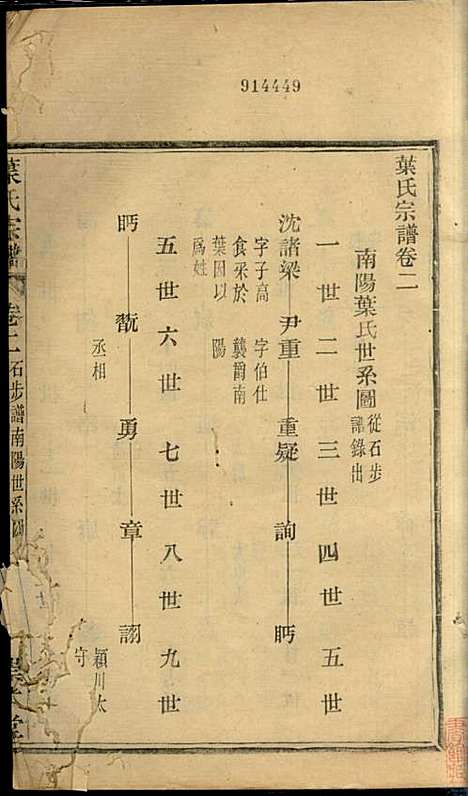 914449
葉氏宗譜卷二
南陽葉氏世系圖 從石步譜錄出
一世 二世 三世 四世 五世
沈諸梁 尹重 重疑 詢 眄
字子高 字伯仕
食采於 襲爵南
葉因以 陽
爲姓
五世 六世 七世 八世 九世
眄 翫 勇 章 詡
丞相
潁川太
守
葉氏宗譜 卷二 石步譜南陽世系圖